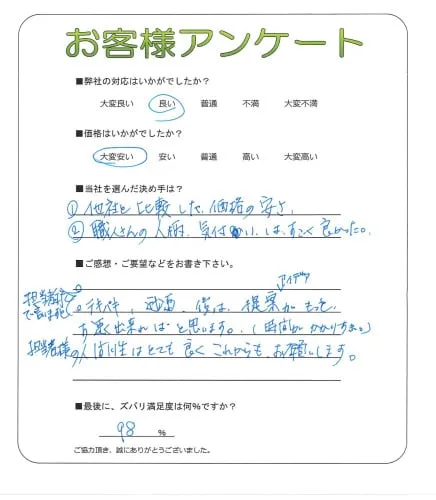 お客様アンケート
■弊社の対応はいかがでしたか?
大変良い 良い 普通 不満 大変不満
■価格はいかがでしたか?
大変安い 安い 普通 高い 大変高い
■当社を選んだ決め手は?
① 他社と比較した、価格の安さ。
② 職人さんの人柄、気付かいは、すごく良かった。
■ご感想・ご要望などをお書き下さい。
アイデア
提案がもっと
出来ればと思います。(時間がかかりすぎ。)
担当者様の人間性はとても良くこれからも、お願いします。
■最後に、ズバリ満足度は何%ですか?
98 %
ご協力頂き、誠にありがとうございました。